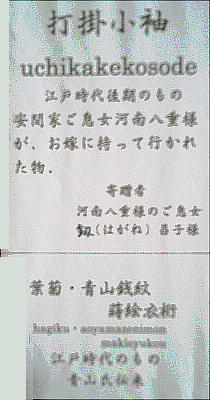 打掛小袖
uchikakekosode
江戸時代後期のもの
安間家ご息女河南八重様
が、お嫁に持って行かれ
た物.
寄贈者
河南八重様のご息女
釼(はがね) 昌子様
葉菊・青山銭紋
蒔絵衣桁
hagiku・aoyamazenimon
makieyukou
江戸時代のもの
青山氏伝来